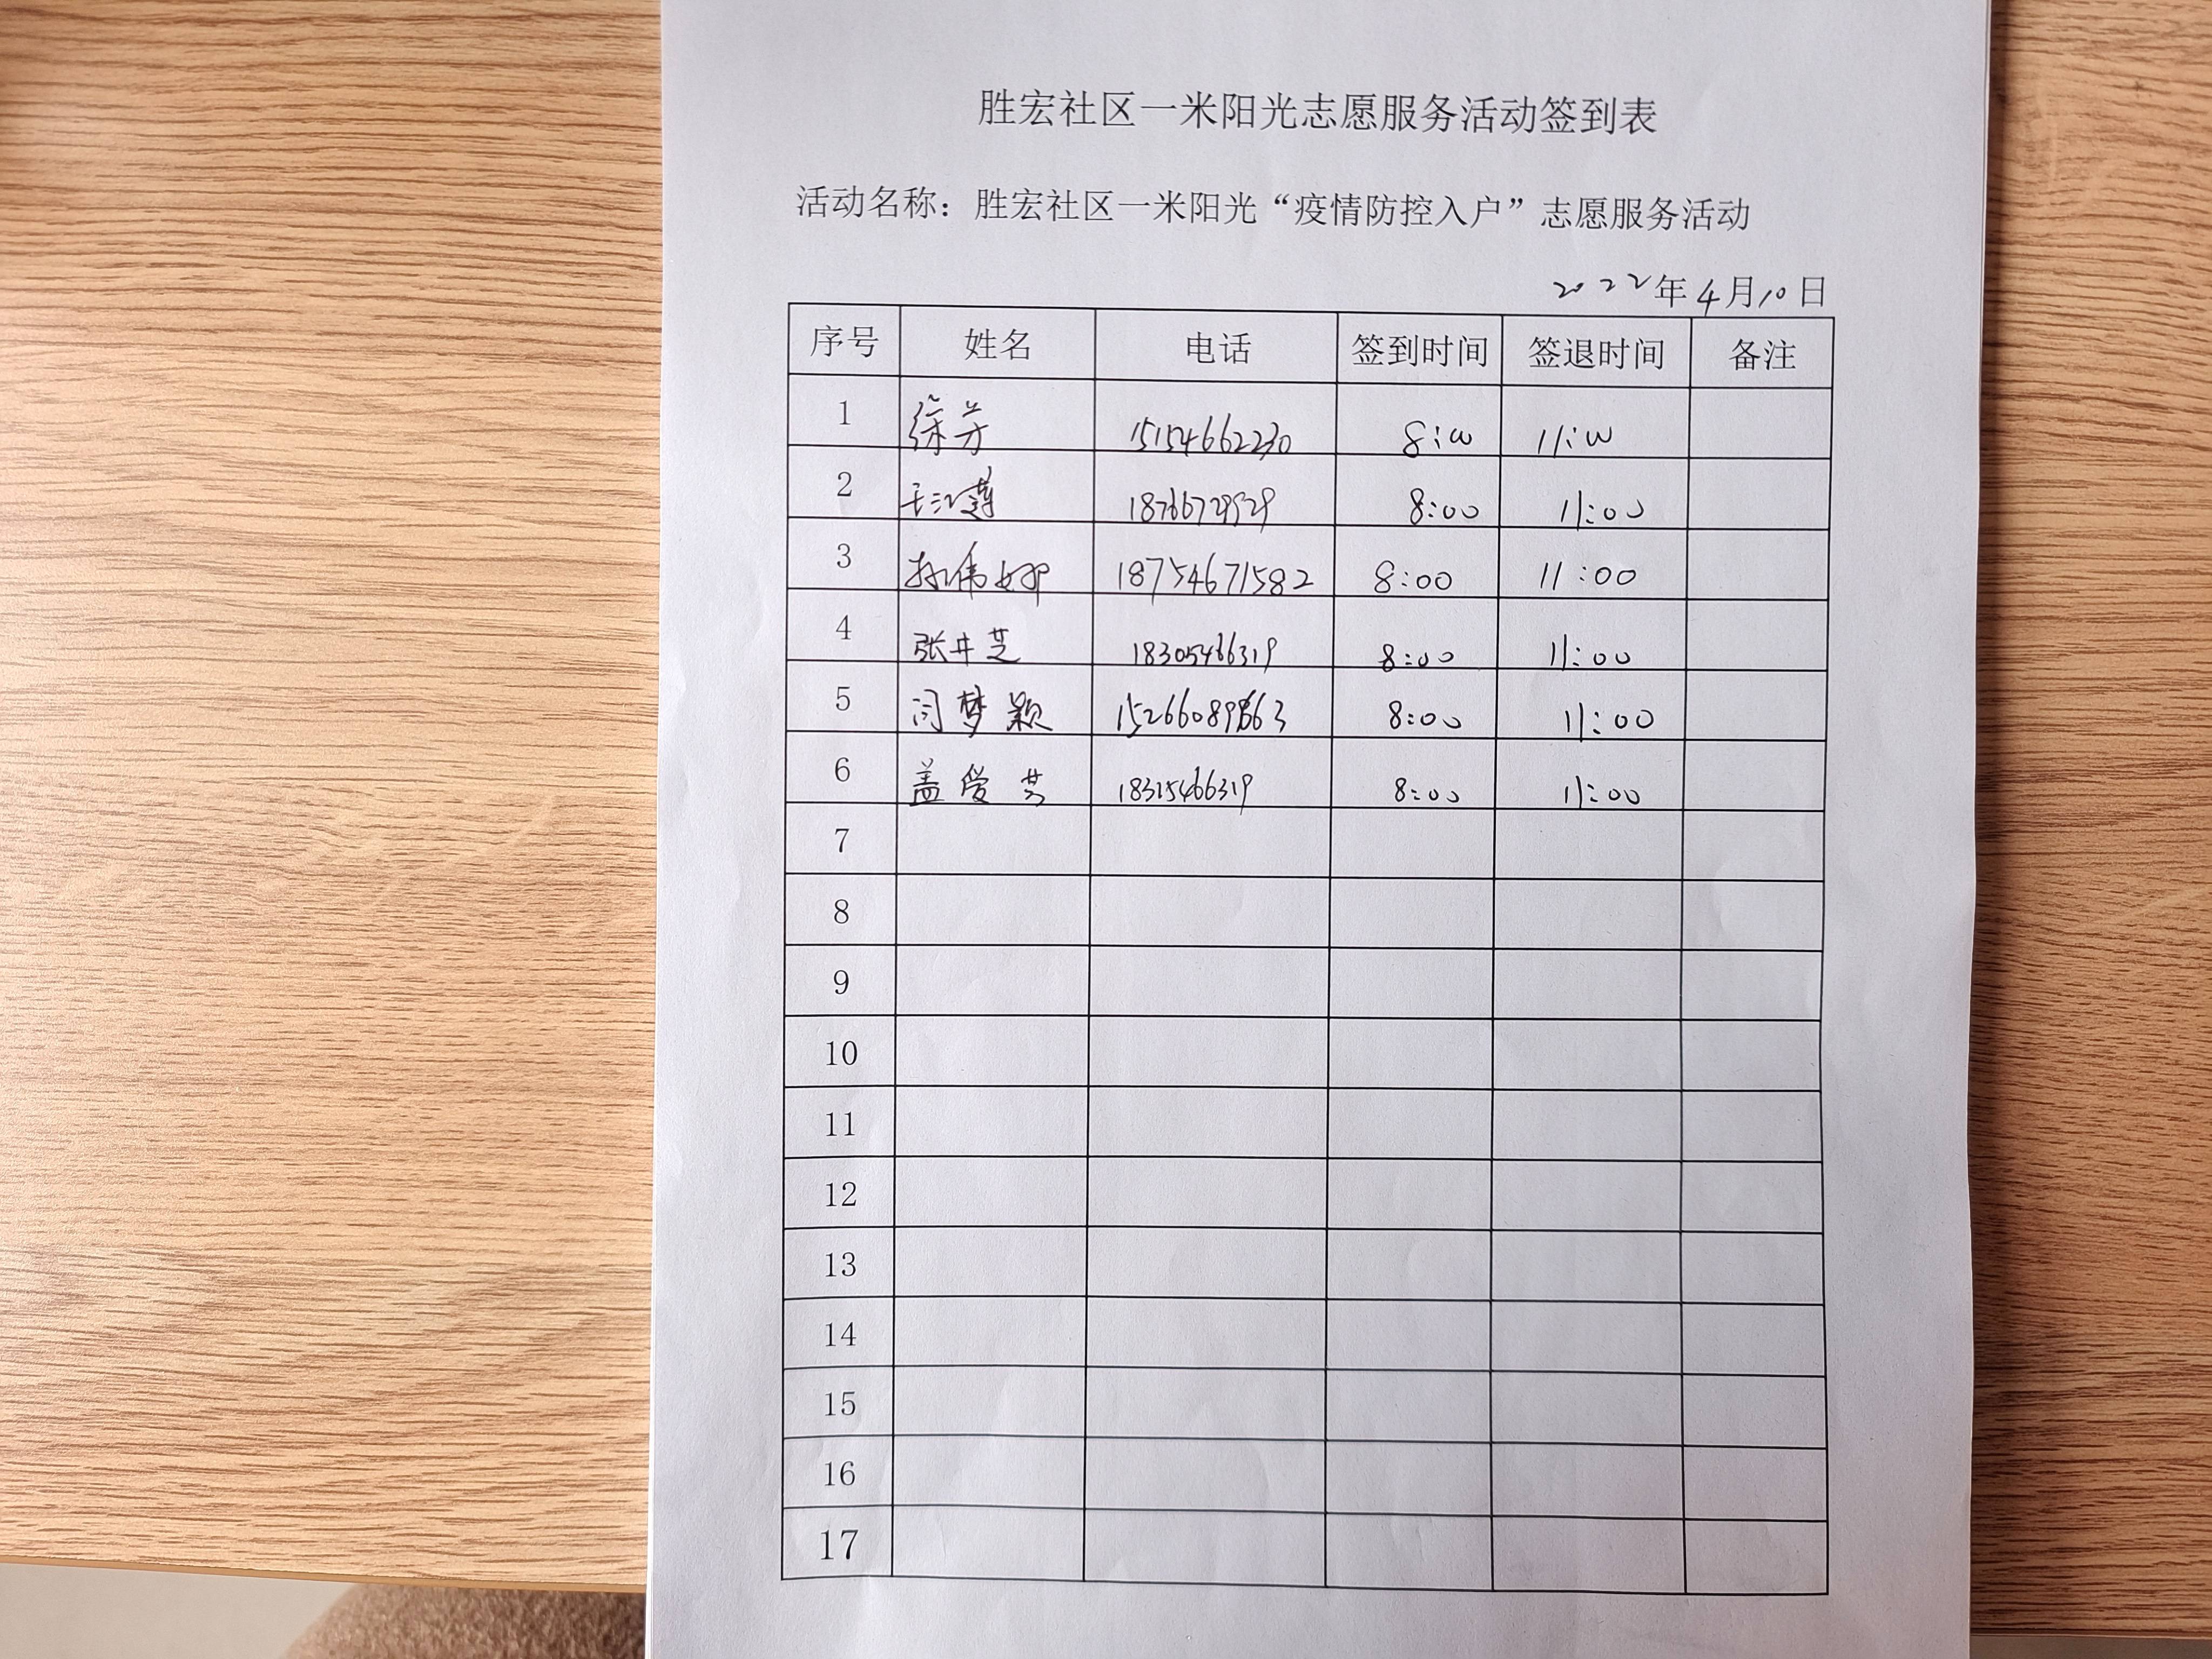 胜宏社区一米阳光志愿服务活动签到表
活动名称：胜宏社区一米阳光“疫情防控入户”志愿服务活动
2022年4月10日
序号 姓名 电话 签到时间 签退时间 备注
1 徐芳 15154662230 8:00 11:00
2 18766729529 8:00 11:00
3 孙伟娜 18754671582 8:00 11:00
4 张井芝 18305466319 8:00 11:00
5 闫梦颖 8:00 11:00
6 盖爱芬 18325466319 8:00 11:00
7
8
9
10
11
12
13
14
15
16
17